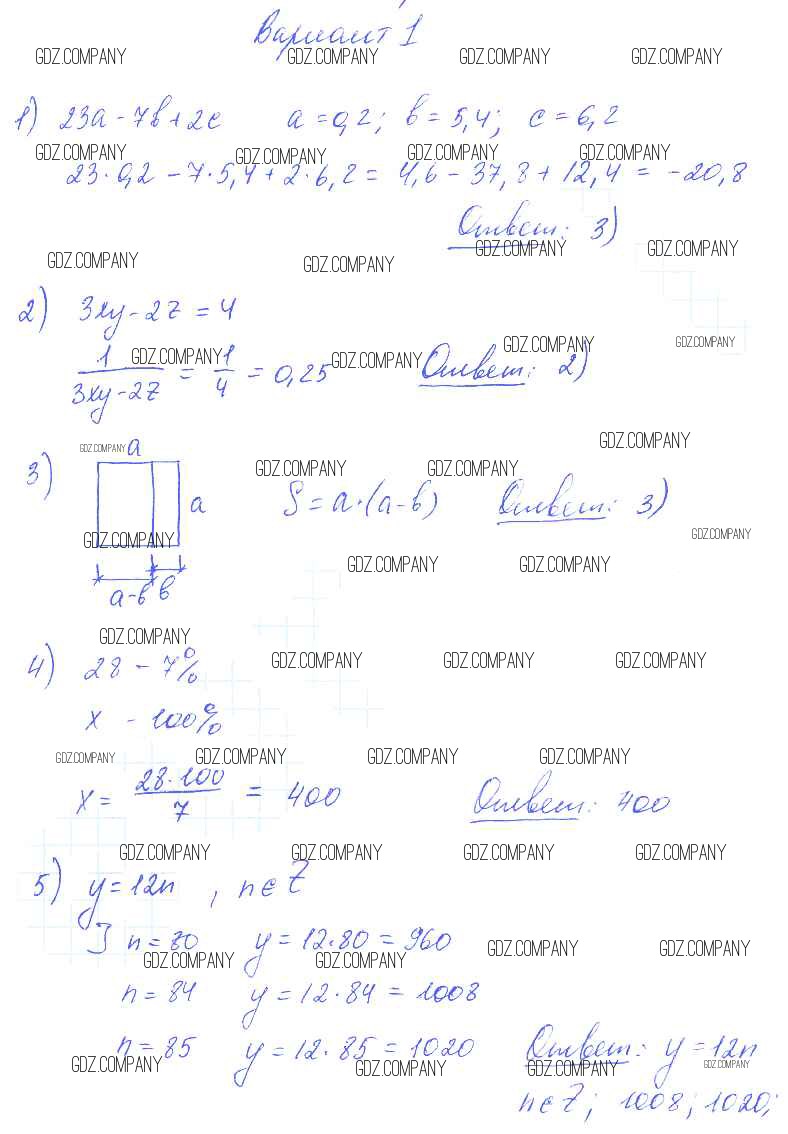 Вариант 1
GDZ.COMPANY GDZ.COMPANY GDZ.COMPANY GDZ.COMPANY
1) 23a - 7b + 2c a = 0,2; b = 5,4; c = 6,2
GDZ.COMPANY GDZ.COMPANY GDZ.COMPANY GDZ.COMPANY
23·0,2 - 7·5,4 + 2·6,2 = 4,6 - 37,8 + 12,4 = -20,8
Ответ: 3)
GDZ.COMPANY GDZ.COMPANY GDZ.COMPANY GDZ.COMPANY
2) 3xy - 2z = 4
GDZ.COMPANY GDZ.COMPANY GDZ.COMPANY GDZ.COMPANY
1/(3xy - 2z) = 1/4 = 0,25 Ответ: 2)
GDZ.COMPANY a GDZ.COMPANY
GDZ.COMPANY GDZ.COMPANY
3) a S = a·(a-b) Ответ: 3)
GDZ.COMPANY GDZ.COMPANY
GDZ.COMPANY GDZ.COMPANY
a-b b
GDZ.COMPANY GDZ.COMPANY GDZ.COMPANY GDZ.COMPANY
4) 28 - 7%
x - 100%
GDZ.COMPANY GDZ.COMPANY GDZ.COMPANY GDZ.COMPANY
x = 28·100/7 = 400 Ответ: 400
GDZ.COMPANY GDZ.COMPANY GDZ.COMPANY GDZ.COMPANY
5) y = 12n , n∈Z
] n = 80 y = 12·80 = 960
GDZ.COMPANY GDZ.COMPANY GDZ.COMPANY GDZ.COMPANY
n = 84 y = 12·84 = 1008
n = 85 y = 12·85 = 1020 Ответ: y = 12n
GDZ.COMPANY GDZ.COMPANY GDZ.COMPANY GDZ.COMPANY
n∈Z; 1008; 1020;